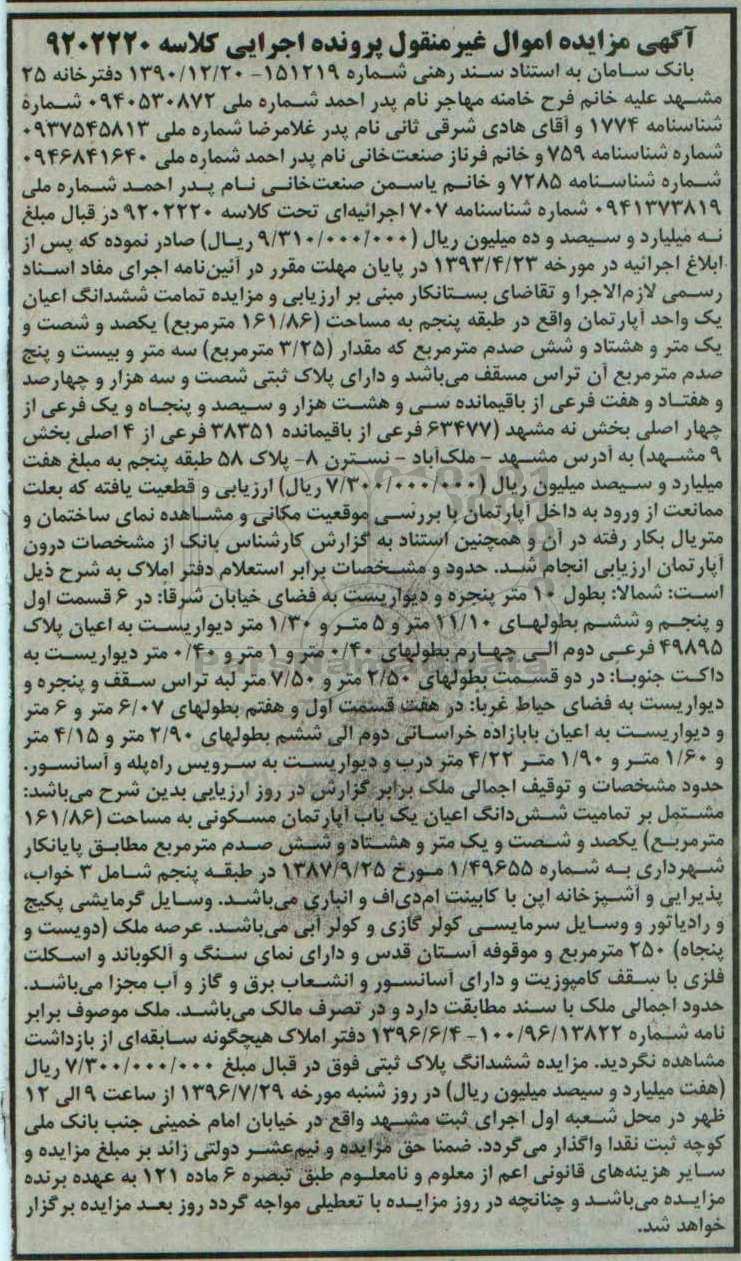 آگهی مزایده اموال غیرمنقول پرونده اجرایی کلاسه ۹۲۰۲۲۲۰
بانک سامان به استناد سند رهنی شماره ۱۵۱۲۱۹- ۱۳۹۰/۱۲/۲۰ دفترخانه ۲۵
مشهد علیه خانم فرح خامنه مهاجر نام پدر احمد شماره ملی ۰۹۴۰۵۳۰۸۷۲ شماره
شناسنامه ۱۷۷۴ و آقای هادی شرقی ثانی نام پدر غلامرضا شماره ملی ۰۹۳۷۵۴۵۸۱۳
شماره شناسنامه ۷۵۹ و خانم فرناز صنعت‌خانی نام پدر احمد شماره ملی ۰۹۴۶۸۴۱۶۴۰
شماره شناسنامه ۷۲۸۵ و خانم یاسمن صنعت‌خانی نام پدر احمد شماره ملی
۰۹۴۱۳۷۳۸۱۹ شماره شناسنامه ۷۰۷ اجرائیه‌ای تحت کلاسه ۹۲۰۲۲۲۰ در قبال مبلغ
نه میلیارد و سیصد و ده میلیون ریال (۹/۳۱۰/۰۰۰/۰۰۰ ریال) صادر نموده که پس از
ابلاغ اجرائیه در مورخه ۱۳۹۳/۴/۲۳ در پایان مهلت مقرر در آئین‌نامه اجرای مفاد اسناد
رسمی لازم‌الاجرا و تقاضای بستانکار مبنی بر ارزیابی و مزایده تمامت ششدانگ اعیان
یک واحد آپارتمان واقع در طبقه پنجم به مساحت (۱۶۱/۸۶ مترمربع) یکصد و شصت و
یک متر و هشتاد و شش صدم مترمربع که مقدار (۳/۲۵ مترمربع) سه متر و بیست و پنج
صدم مترمربع آن تراس مسقف می‌باشد و دارای پلاک ثبتی شصت و سه هزار و چهارصد
و هفتاد و هفت فرعی از باقیمانده سی و هشت هزار و سیصد و پنجاه و یک فرعی از
چهار اصلی بخش نه مشهد (۶۳۴۷۷ فرعی از باقیمانده ۳۸۳۵۱ فرعی از ۴ اصلی بخش
۹ مشهد) به آدرس مشهد - ملک‌آباد - نسترن ۸- پلاک ۵۸ طبقه پنجم به مبلغ هفت
میلیارد و سیصد میلیون ریال (۷/۳۰۰/۰۰۰/۰۰۰ ریال) ارزیابی و قطعیت یافته که بعلت
ممانعت از ورود به داخل آپارتمان با بررسی موقعیت مکانی و مشاهده نمای ساختمان و
متریال بکار رفته در آن و همچنین استناد به گزارش کارشناس بانک از مشخصات درون
آپارتمان ارزیابی انجام شد. حدود و مشخصات برابر استعلام دفتر املاک به شرح ذیل
است: شمالا: بطول ۱۰ متر پنجره و دیواریست به فضای خیابان شرقا: در ۶ قسمت اول
و پنجم و ششم بطولهای ۱۱/۱۰ متر و ۵ متر و ۱/۳۰ متر دیواریست به اعیان پلاک
۴۹۸۹۵ فرعی دوم الی چهارم بطولهای ۰/۴۰ متر و ۱ متر و ۰/۴۰ متر دیواریست به
داکت جنوبا: در دو قسمت بطولهای ۲/۵۰ متر و ۷/۵۰ متر لبه تراس سقف و پنجره و
دیواریست به فضای حیاط غربا: در هفت قسمت اول و هفتم بطولهای ۶/۰۷ متر و ۶ متر
و دیواریست به اعیان بابازاده خراسانی دوم الی ششم بطولهای ۲/۹۰ متر و ۴/۱۵ متر
و ۱/۶۰ متر و ۱/۹۰ متر ۴/۲۲ متر درب و دیواریست به سرویس راه‌پله و آسانسور.
حدود مشخصات و توقیف اجمالی ملک برابر گزارش در روز ارزیابی بدین شرح می‌باشد:
مشتمل بر تمامیت شش‌دانگ اعیان یک باب آپارتمان مسکونی به مساحت (۱۶۱/۸۶
مترمربع) یکصد و شصت و یک متر و هشتاد و شش صدم مترمربع مطابق پایانکار
شهرداری به شماره ۱/۴۹۶۵۵ مورخ ۱۳۸۷/۹/۲۵ در طبقه پنجم شامل ۳ خواب،
پذیرایی و آشپزخانه اپن با کابینت ام‌دی‌اف و انباری می‌باشد. وسایل گرمایشی پکیج
و رادیاتور و وسایل سرمایسی کولر گازی و کولر آبی می‌باشد. عرصه ملک (دویست و
پنجاه) ۲۵۰ مترمربع و موقوفه آستان قدس و دارای نمای سنگ و آلکوباند و اسکلت
فلزی با سقف کامپوزیت و دارای آسانسور و انشعاب برق و گاز و آب مجزا می‌باشد.
حدود اجمالی ملک با سند مطابقت دارد و در تصرف مالک می‌باشد. ملک موصوف برابر
نامه شماره ۱۰۰/۹۶/۱۳۸۲۲- ۱۳۹۶/۶/۴ دفتر املاک هیچگونه سابقه‌ای از بازداشت
مشاهده نگردید. مزایده ششدانگ پلاک ثبتی فوق در قبال مبلغ ۷/۳۰۰/۰۰۰/۰۰۰ ریال
(هفت میلیارد و سیصد میلیون ریال) در روز شنبه مورخه ۱۳۹۶/۷/۲۹ از ساعت ۹ الی ۱۲
ظهر در محل شعبه اول اجرای ثبت مشهد واقع در خیابان امام خمینی جنب بانک ملی
کوچه ثبت نقدا واگذار می‌گردد. ضمنا حق مزایده و نیم‌عشر دولتی زائد بر مبلغ مزایده و
سایر هزینه‌های قانونی اعم از معلوم و نامعلوم طبق تبصره ۶ ماده ۱۲۱ به عهده برنده
مزایده می‌باشد و چنانچه در روز مزایده با تعطیلی مواجه گردد روز بعد مزایده برگزار
خواهد شد.